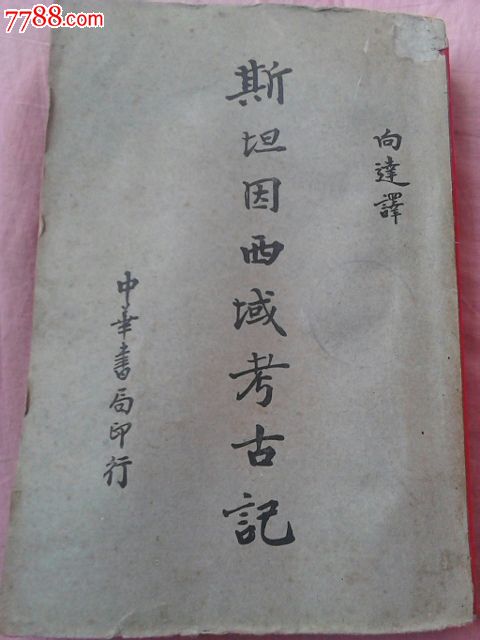 7788.com
向達譯
斯坦因西域考古記
中華書局印行